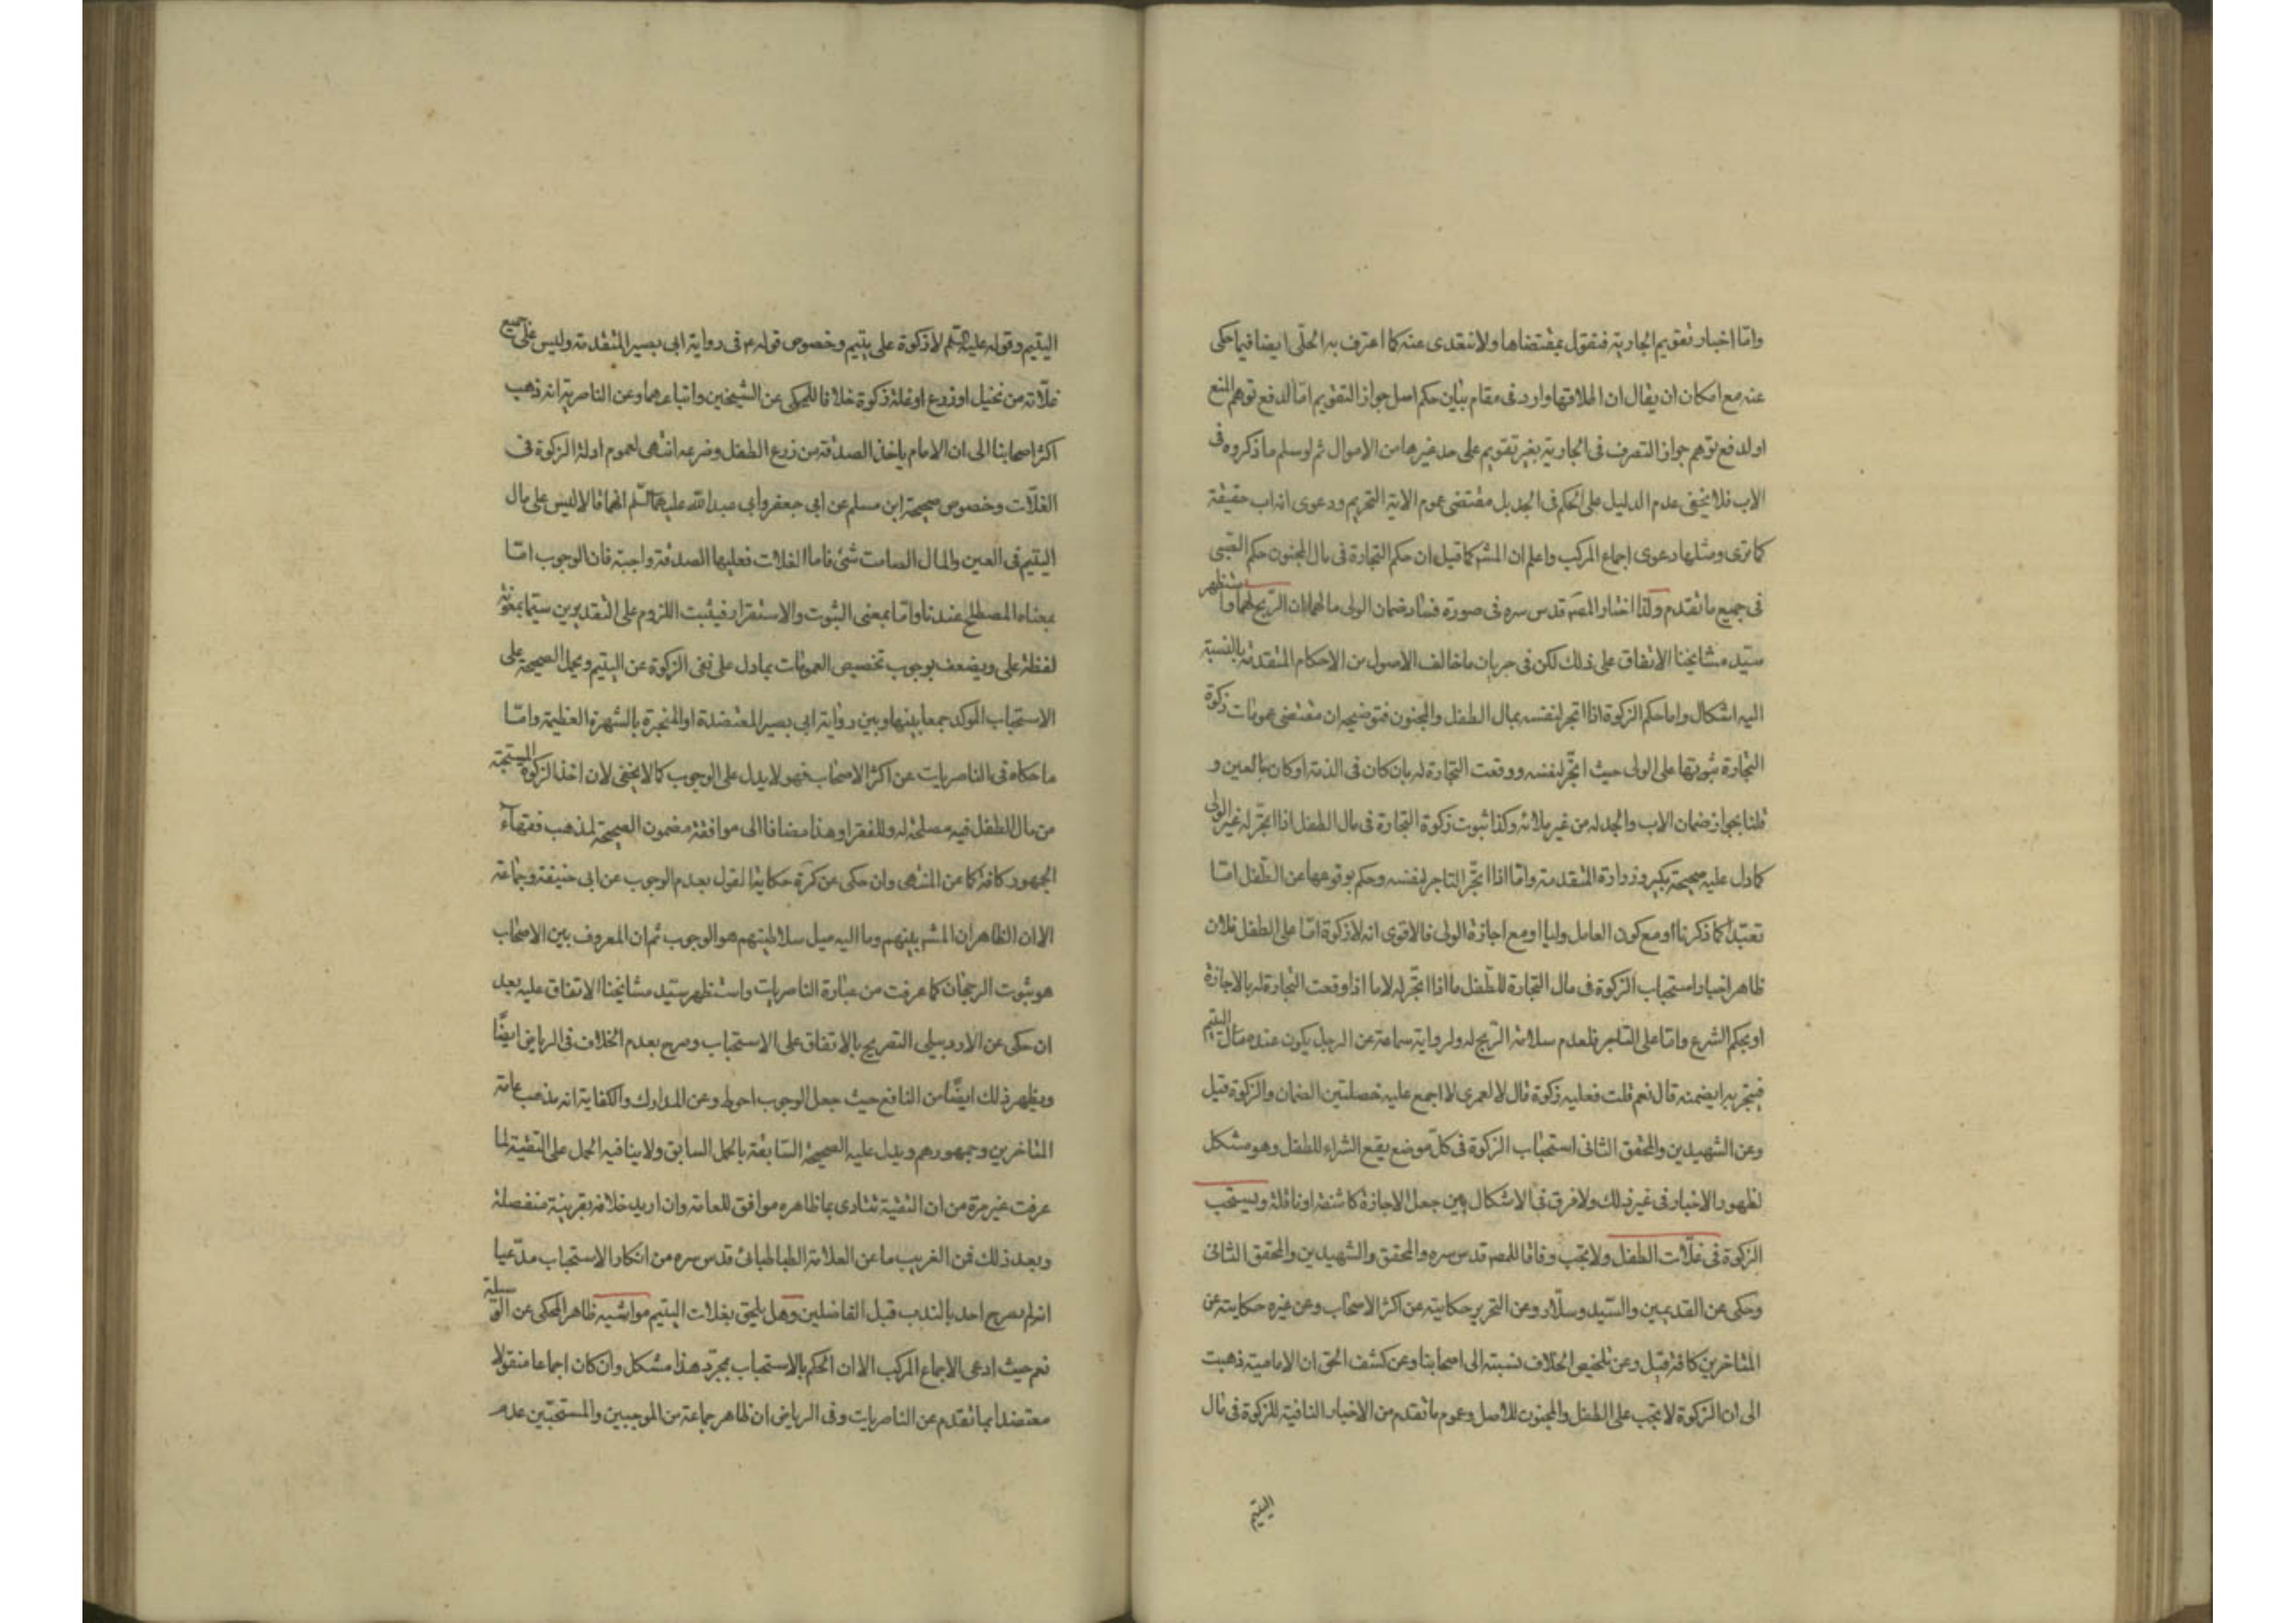 وامّا اخبار تقويم الجارية فنقول بمقتضاها ولا نتعدى عنه كما اعترف به الحلّي ايضا فيما حكى
عنه مع امكان ان يقال ان اطلاقها وارد فى مقام بيان حكم اصل جواز التقويم امّا لدفع توهم المنع
او لدفع توهم جواز التصرف فى الجارية بغير تقويم على حد غيرها من الاموال ثم لو سلم ما ذكروه فى
الاب فلا يخفى عدم الدليل على الحكم فى الجد بل مقتضى عموم الاية التحريم ودعوى انه اب حقيقة
كما ترى ومثلها دعوى اجماع المركب واعلم ان المشه كما قيل ان حكم التجارة فى مال المجنون حكم الصبى
فى جميع ما تقدم ولذا اختار المصه قدس سره فى صورة ضمان الولى مالهما ان الربح لهما واستظهر
سيّد مشايخنا الاتفاق على ذلك لكن فى جريان ما خالف الاصول من الاحكام المتقدمة بالنسبة
اليه اشكال واما حكم الزكوة اذا اتجر لنفسه بمال الطفل والمجنون فتوضيحه ان مقتضى عمومات زكوة
التجارة ثبوتها على الولى حيث اتجر لنفسه ووقعت التجارة له بان كان فى الذمة او كان بالعين و
قلنا بجواز ضمان الاب والجد له من غير ملائه وكذا ثبوت زكوة التجارة فى مال الطفل اذا اتجر له غير الولى
كما دل عليه صحيحة بكير وزرارة المتقدمة وامّا اذا اتجر التاجر لنفسه وحكم بوقوعها عن الطفل امّا
تعبّداً كما ذكرنا او مع كون العامل وليا او مع اجازة الولى فالاقوى انه لا زكوة امّا على الطفل فلان
ظاهر اخبار استحباب الزكوة فى مال التجارة للطفل ما اذا اتجر له لا ما اذا وقعت التجارة له بالاجازة
او بحكم الشرع وامّا على التاجر فلعدم سلامة الربح له ولرواية سماعة عن الرجل يكون عنده مال اليتيم
فيتجر به ايضمنه قال نعم قلت فعليه زكوة قال لا لعمرى لا اجمع عليه خصلتين الضمان والزكوة قيل
وعن الشهيدين والمحقق الثانى استحباب الزكوة فى كلّ موضع يقع الشراء للطفل وهو مشكل
لظهور الاخبار فى غير ذلك ولا فرق فى الاشكال بين جعل الاجازة كاشفة او ناقلة ويستحب
الزكوة فى غلّات الطفل ولا يجب وفاقا للمصه قدس سره والمحقق والشهيدين والمحقق الثانى
وحكى عن القديمين والسّيد وسلّار وعن التحرير حكايته عن اكثر الاصحاب وعن غيره حكايته عن
المتاخرين كافة قيل وعن تلخيص الخلاف نسبته الى اصحابنا وعن كشف الحق ان الامامية ذهبت
الى ان الزكوة لا يجب على الطفل والمجنون للاصل وعموم ما تقدم من الاخبار النافية للزكوة فى مال
اليتيم
اليتيم وقوله عليه السّلم لا زكوة على يتيم وخصوص قوله ع فى رواية ابى بصير المتقدمة وليس على جميع
غلّاته من نخيل او زرع او غلة زكوة خلافا للمحكى عن الشيخين واتباعهما وعن الناصرية انه ذهب
اكثر اصحابنا الى ان الامام ياخذ الصدقة من زرع الطفل وضرعه انتهى لعموم ادلة الزكوة فى
الغلّات وخصوص صحيحة ابن مسلم عن ابى جعفر وابى عبد الله عليهما السّلم انهما قالا ليس على مال
اليتيم فى العين والمال الصامت شئ فاما الغلات فعليها الصدقة واجبة فان الوجوب امّا
بمعناه المصطلح عندنا وامّا بمعنى الثبوت والاستقرار فيثبت اللزوم على التقديرين سيّما بمعونة
لفظة على ويضعف بوجوب تخصيص العمومات بما دل على نفى الزكوة عن اليتيم ويحمل الصحيحة على
الاستحباب الموكد جمعا بينها وبين رواية ابى بصير المعتضدة او المنجبرة بالشهرة العظيمة وامّا
ما حكاه فى الناصريات عن اكثر الاصحاب فهو لا يدل على الوجوب كما لا يخفى لان اخذ الزكوة المستحبّة
من مال الطفل فيه مصلحة له وللفقرا وهذا مضافا الى موافقة مضمون الصحيحة لمذهب فقهآء
الجمهور كافة كما عن المنتهى وان حكى عن كرة حكاية القول بعدم الوجوب عن ابى حنيفة وجماعة
الا ان الظاهر ان المشه بينهم وما اليه ميل سلاطينهم هو الوجوب ثم ان المعروف بين الاصحاب
هو ثبوت الرجحان كما عرفت من عبارة الناصريات واستظهر سيّد مشايخنا الاتفاق عليه بعد
ان حكى عن الاردبيلى التصريح بالاتفاق على الاستحباب وصرح بعدم الخلاف فى الرياض ايضًا
ويظهر ذلك ايضًا من النافع حيث جعل الوجوب احوط وعن المدارك والكفاية انه مذهب عامة
المتاخرين وجمهورهم ويدل عليه الصحيحة السّابقة بالحمل السابق ولا ينافيه الحمل على التقية لما
عرفت غير مرة من ان التقية تتادى بما ظاهره موافق للعامة وان اريد خلافه بقرينة منفصلة
وبعد ذلك فمن الغريب ما عن العلامة الطباطبائى قدس سره من انكار الاستحباب مدّعيا
انه لم يصرح احد بالندب قبل الفاضلين وهل يلحق بغلات اليتيم مواشيه ظاهر المحكى عن الوسيلة
نعم حيث ادعى الاجماع المركب الا ان الحكم بالاستحباب بمجرّد هذا مشكل وان كان اجماعا منقولا
معتضدا بما تقدم عن الناصريات وفى الرياض ان ظاهر جماعة من الموجبين والمستحبّين عدم